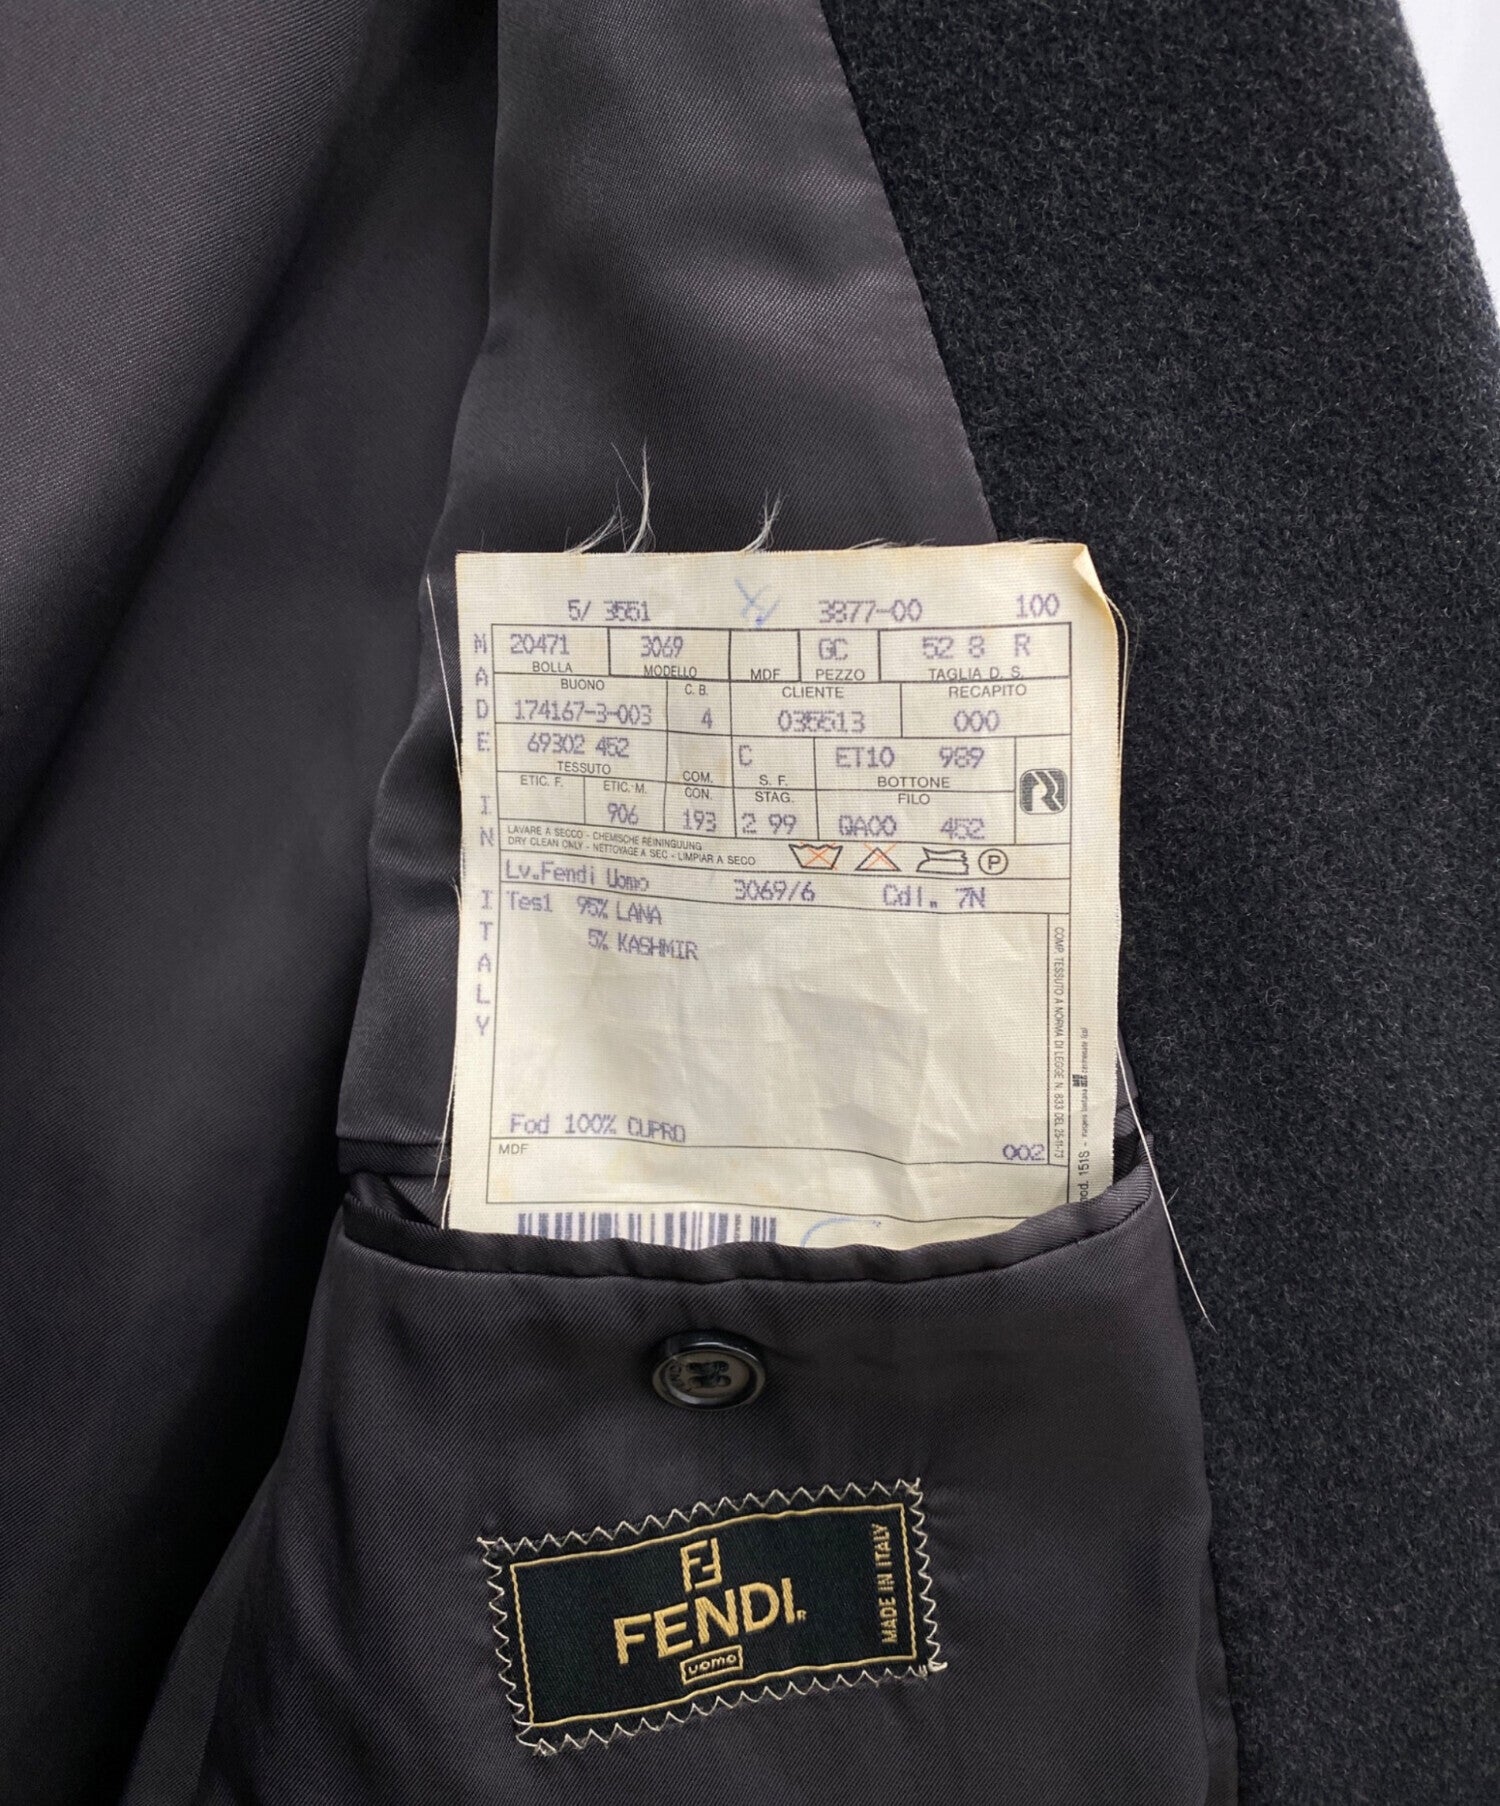 5/ 3551 3877-00 100
MADE IN ITALY
20471 3069 GC 52 8 R
BOLLA MODELLO MDF PEZZO TAGLIA D. S.
BUONO C. B. CLIENTE RECAPITO
174167-3-003 4 035513 000
69302 452 C ET10 989
TESSUTO COM. S. F. BOTTONE
ETIC. F. ETIC. M. CON. STAG. FILO
906 193 2 99 QA00 452
LAVARE A SECCO - CHEMISCHE REININGUUNG
DRY CLEAN ONLY - NETTOYAGE A SEC - LIMPIAR A SECO
P
Lv.Fendi Uomo 3069/6 Cdl. 7N
Tes1 95% LANA
5% KASHMIR
Fod 100% CUPRO
MDF 002
COMP. TESSUTO A NORMA DI LEGGE N. 833 DEL 25-11-73
mod. 151S -
FENDI
FENDI
uomo
MADE IN ITALY